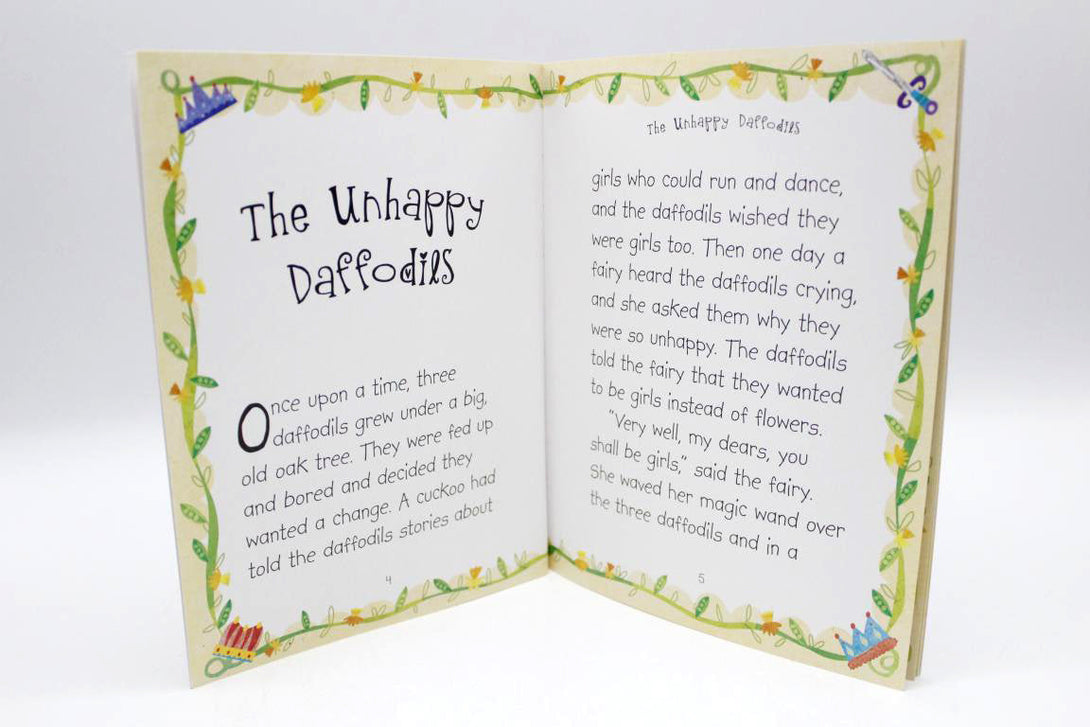 The Unhappy
Daffodils
Once upon a time, three
daffodils grew under a big,
old oak tree. They were fed up
and bored and decided they
wanted a change. A cuckoo had
told the daffodils stories about
4
The Unhappy Daffodils
girls who could run and dance,
and the daffodils wished they
were girls too. Then one day a
fairy heard the daffodils crying,
and she asked them why they
were so unhappy. The daffodils
told the fairy that they wanted
to be girls instead of flowers.
"Very well, my dears, you
shall be girls," said the fairy.
She waved her magic wand over
the three daffodils and in a
5